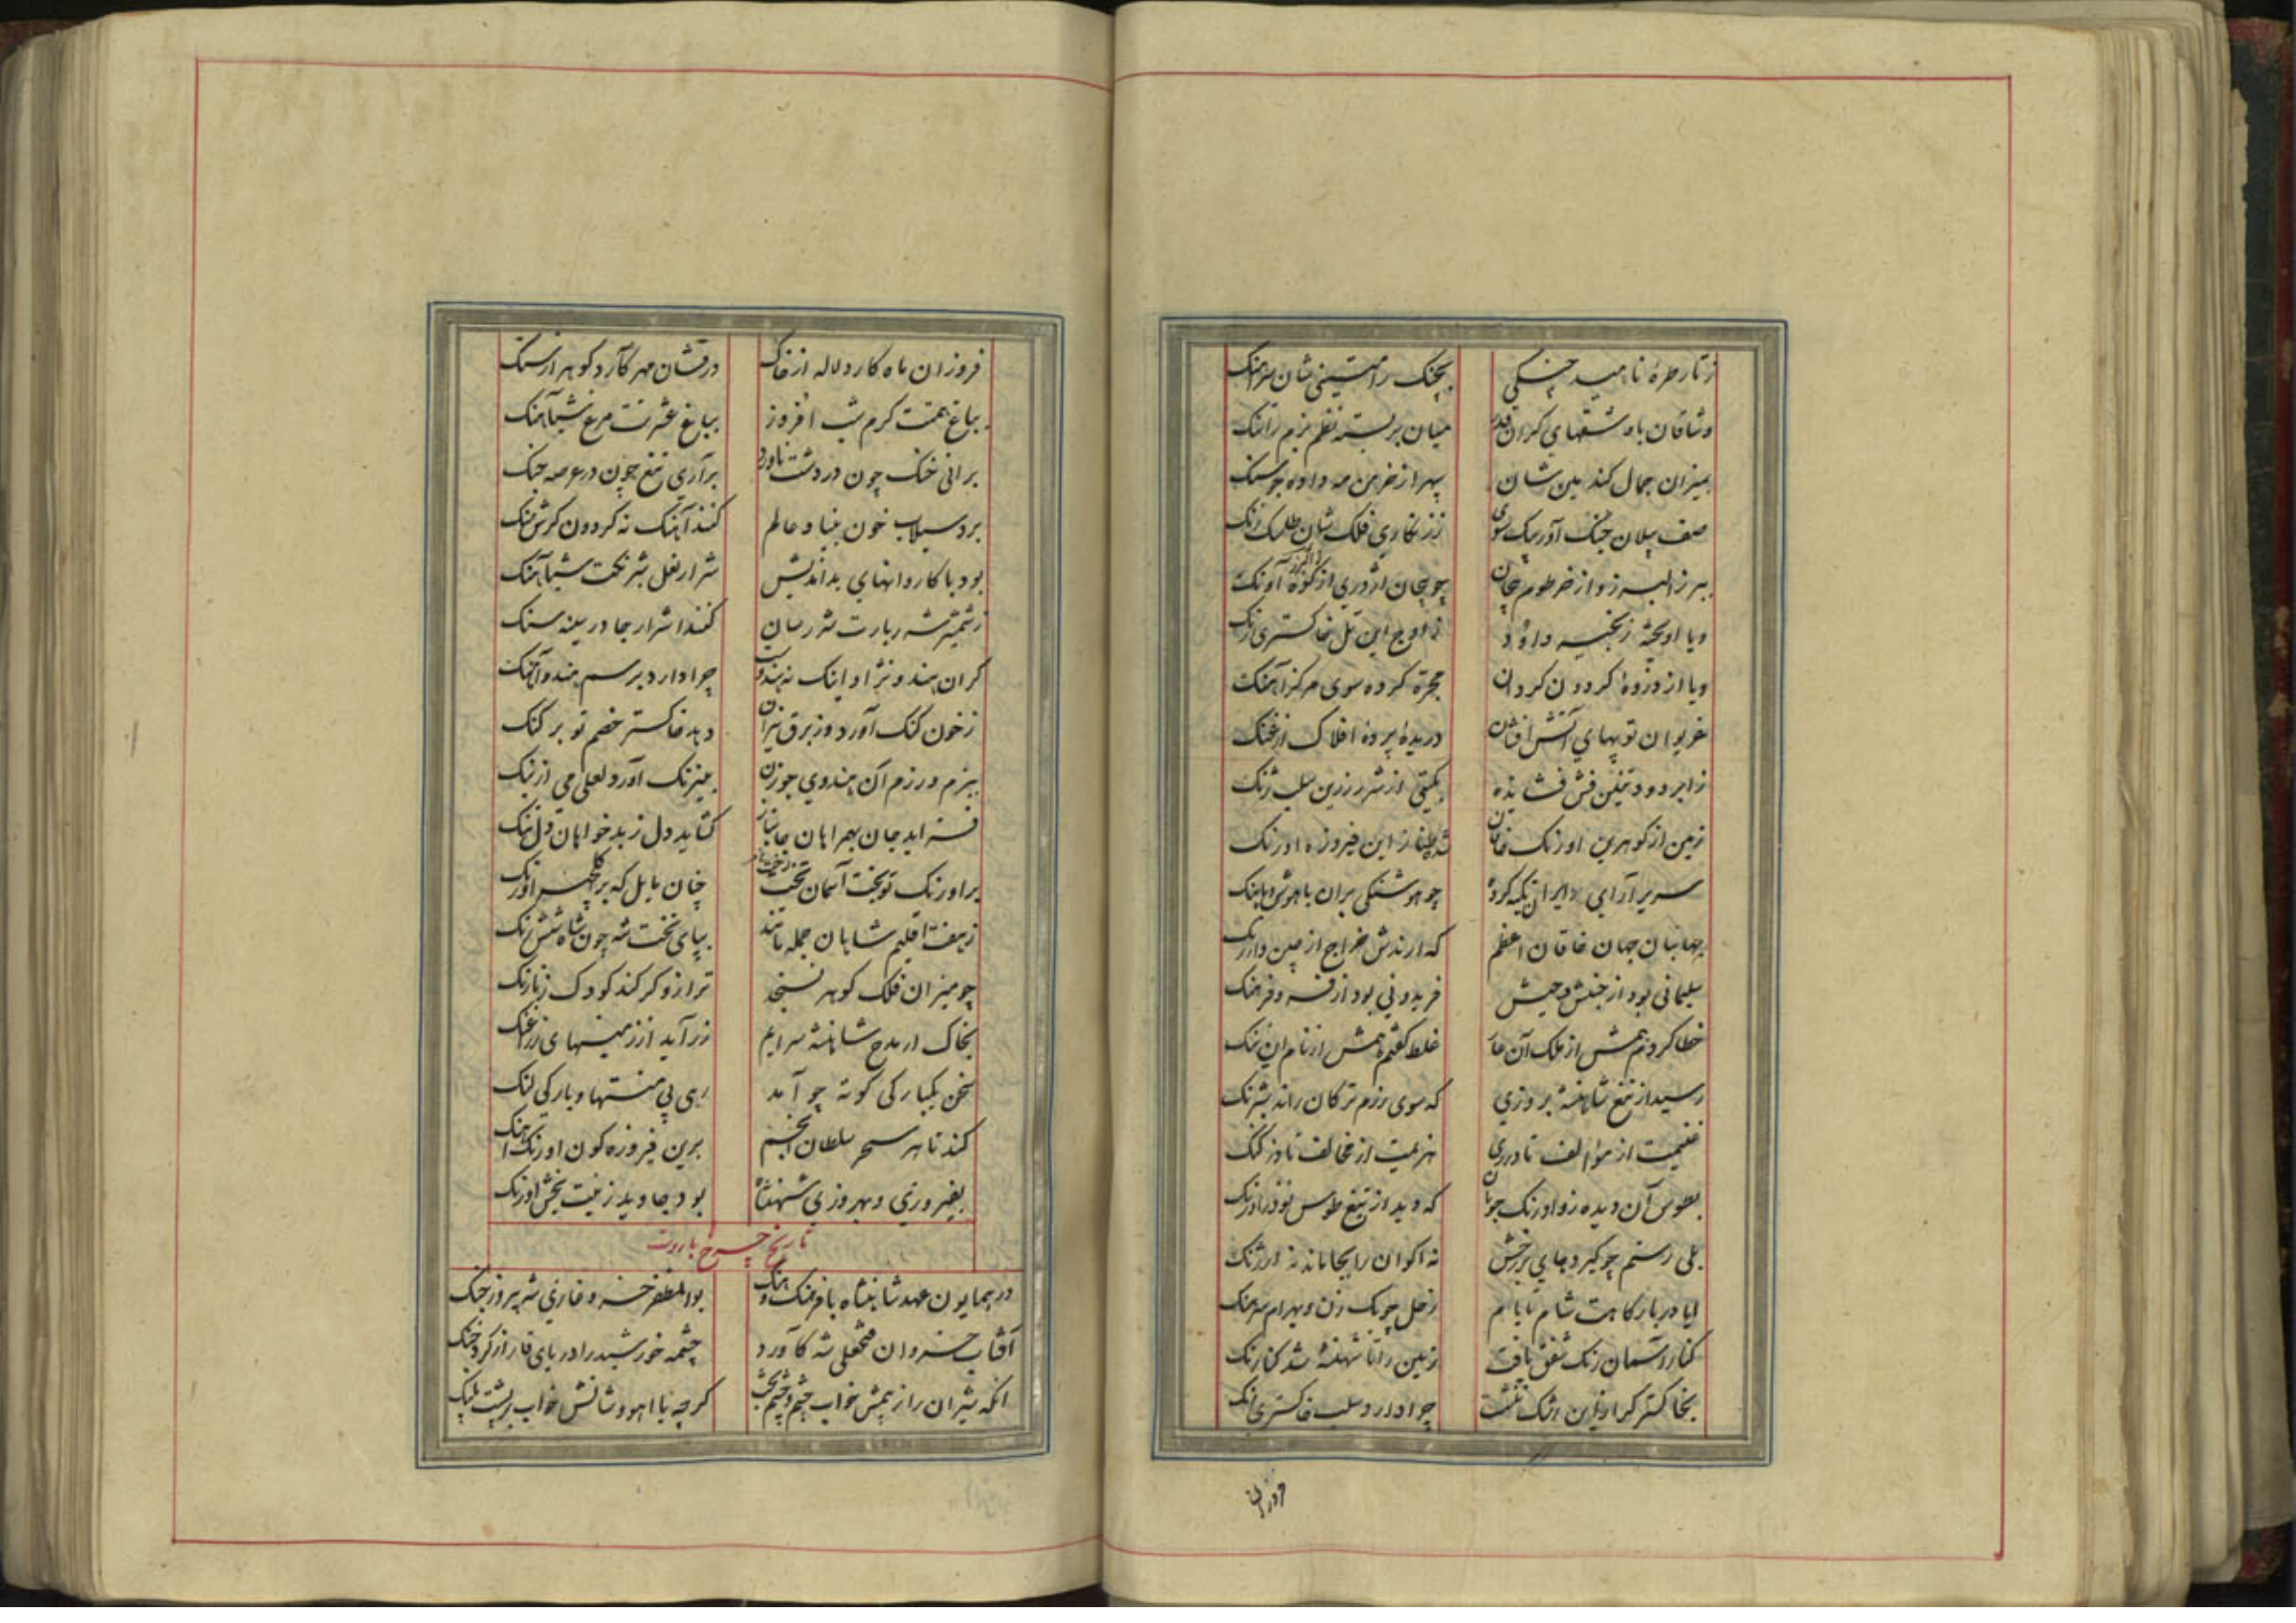 ز تار طرهٔ ناهید چنگی بچنک راستینی شان سرآهنک
وشاقان با وشقهای کران قدر میان بر بسته نظم بزم را تنک
بمیزان جمال کند بین شان سپهر از خرمن مه داده جو سنک
صف پیلان جنک آور بیک سوی ز زنکاری فلک شان
بپیچان چو پیچان اژدری از کوه آونک
و یا اویخته زنجیر داود ز اوج این تل خاکستری رنک
و یا از دروهٔ کردون کردان مجره کرده سوی مرکز آهنک
غریوان توپهای آتش افشان دریده پرده افلاک از غنک
ز ابر دود تنین فش فشانده بکیتی از شرر زرین سلب رنک
زمین از کوهرین اورنک خاقان شده طناز این فیروزه اورنک
سریر آرای ایران تکیه کرده چو هوشنکی بران با هوش و با هنک
جهانبان جهان خاقان اعظم که ارندش خراج از چین و از زنک
سلیمانی بود از جنبش و جیش فریدونی بود از فر و فرهنک
خطا کردم همش از ملک آن عار غلط کفتم همش از نام این ننک
رسید از تیغ شاهنشه بروزی که سوی رزم ترکان راند شبرنک
غنیمت از موالف تا در ری هزیمت از مخالف تا در کنک
بطوس آن دیده زو اورنک جویان که دید از تیغ طوس نوذر اورنک
بلی رستم چو کیرد جای بر رخش نه اکوان را بجا ماند نه ارژنک
ایا در بارکاهت شام تا بام زحل چوبک زن و بهرام سرهنک
کنار آسمان رنک شفق یافت زمین را تا شهنشه شد کنارنک
بخاکستر کر او زین اشک ننشست چرا دارد سلب خاکستری رنک
فروزان
فروزان ماه کارد لاله از خاک درفشان مهر کآرد کوهر از سنک
بباغ همتت کرم شب افروز بباغ عشرتت مرغ شباهنک
برانی خنک چون در دشت ناورد برآری تیغ چون در عرصه جنک
برد سیلاب خون بنیاد عالم کند آهنک نه کردون کرش منک
بود با کاروانهای بداندیش شرار نعل شبرنکت شباهنک
ز شمشیر شرربارت شررسان کنند اشرار جا در سینه سنک
کر آن هندو نژاد اینک نه هندوست چرا دارد برسم هندو آهنک
ز خون کنک آورد وز برق نیران دهد خاکستر خصم تو بر کنک
ببزم و رزم آن هندوی جوزن به نیرنک آورد لعلی می از نک
فزاید جان بهمراهان جانباز کشاید دل ز بدخواهان دل تنک
بر اورنک تو بخت آسمان تخت چنان مایل که بر کلچهر اورنک
ز هفت اقلیم شاهان جمله تازند بپای تخت شه چون شاه شش رنک
چو میزان فلک کوهر نسنجد ترازو کر کند کودک ز نارنک
بخاک ار مدح شاهنشه سرایم زر آید از زمینهای زراغنک
سخن یکبارکی کوته چو آمد رهی بی منتها و بارکی لنک
کند تا هر سحر سلطان انجم برین فیروزه کون اورنک آهنک
بفیروزی و بهروزی شهنشاه بود جاوید زینت بخش اورنک
تاریخ چرخ باروت
در همایون عهد شاهنشاه با فرهنک و هنک بوالمظفر خسرو غازی شه پیروز جنک
آفتاب خسروان فتحعلی شه کآورد چشمه خورشید را دریای قار از کرد خنک
آنکه شیران را ز بیمش خواب چشم و چشم بخت کر چه با آهو وشانش خواب بر پشت پلنک